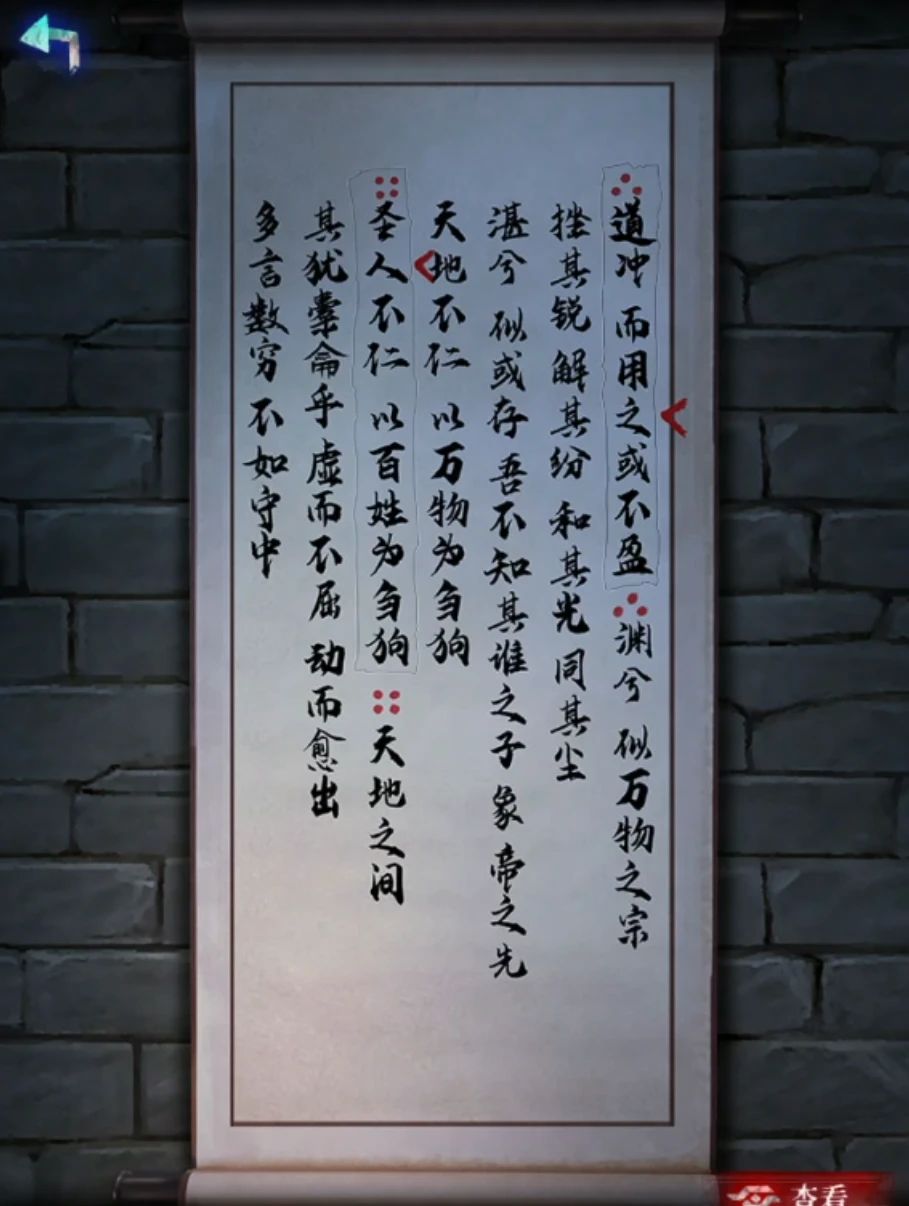 道冲 而用之或不盈 渊兮 似万物之宗
挫其锐 解其纷 和其光 同其尘
湛兮 似或存 吾不知其谁之子 象帝之先
天地不仁 以万物为刍狗
圣人不仁 以百姓为刍狗 天地之间
其犹橐龠乎 虚而不屈 动而愈出
多言数穷 不如守中
查看